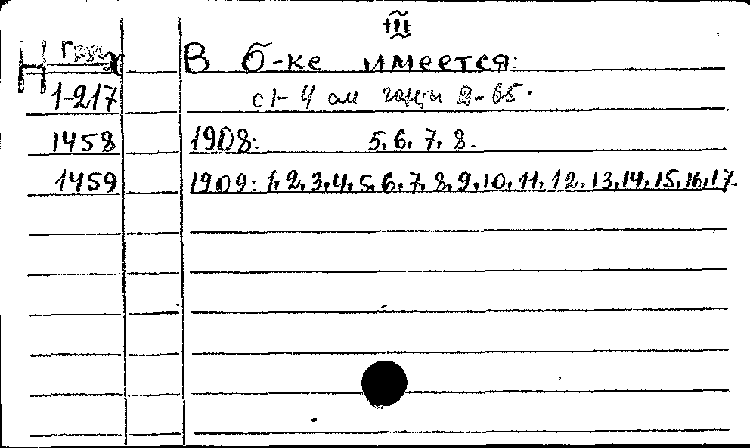 III
Н В б-ке имеется:
1-217 с 1-4 см
1458 1908: 5, 6, 7, 8.
1459 1909: 1, 2, 3, 4, 5, 6, 7, 8, 9, 10, 11, 12, 13, 14, 15, 16, 17.